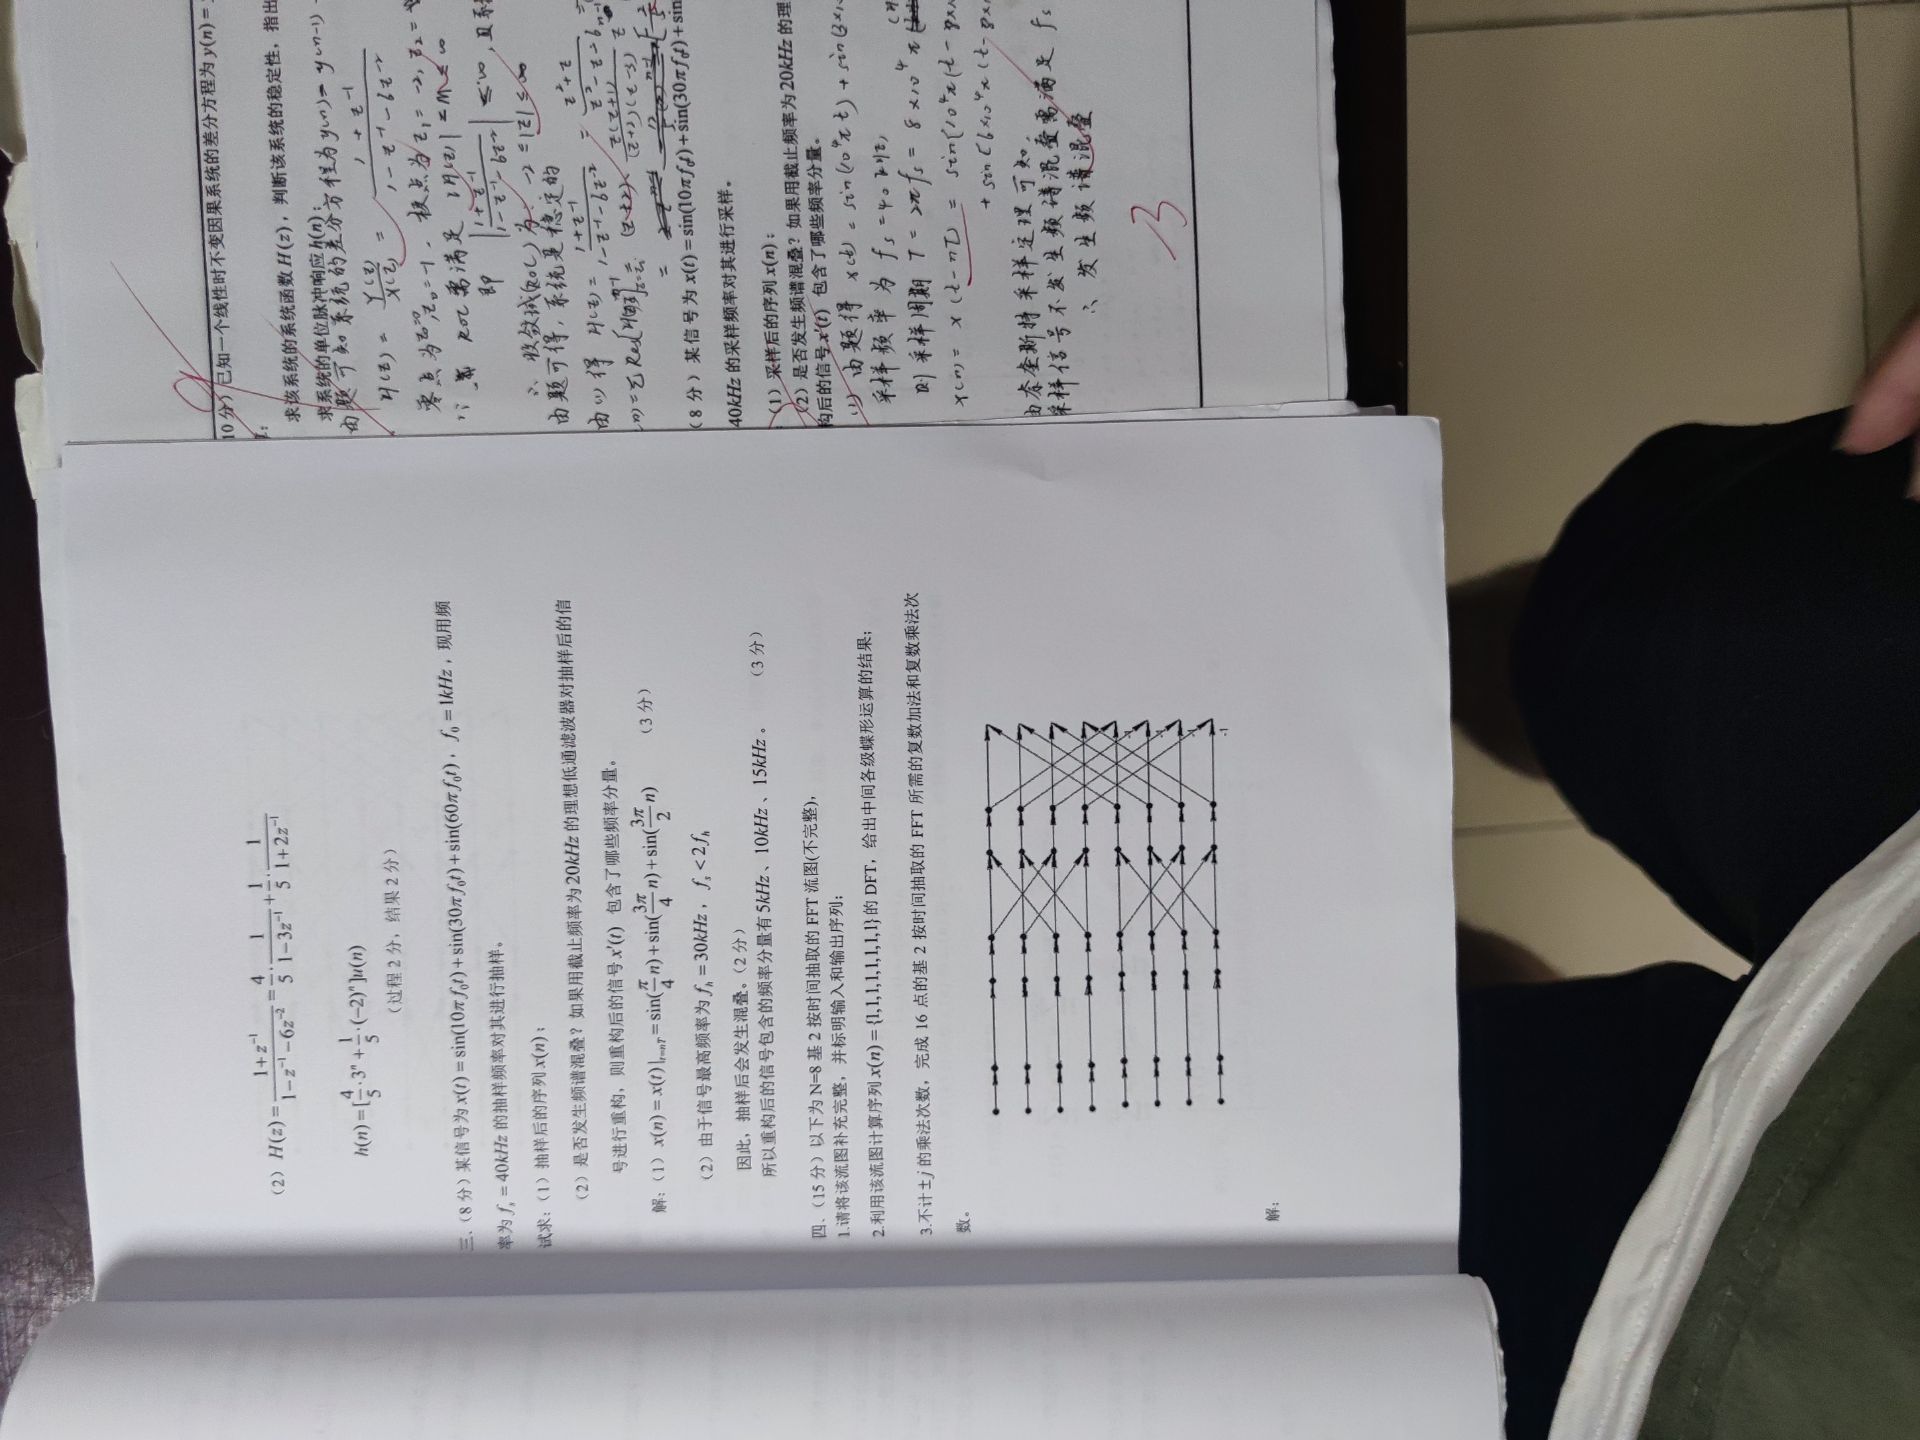 (2) H(z)=\frac{1+z^{-1}}{1-z^{-1}-6z^{-2}}=\frac{4}{5}·\frac{1}{1-3z^{-1}}+\frac{1}{5}·\frac{1}{1+2z^{-1}}
h(n)=[\frac{4}{5}·3^n+\frac{1}{5}·(-2)^n]u(n)
(过程2分，结果2分)
三、(8分) 某信号为x(t)=sin(10πf₀t)+sin(30πf₀t)+sin(60πf₀t)，f₀=1kHz，现用频
率为fₛ=40kHz的抽样频率对其进行抽样。
试求：(1) 抽样后的序列x(n)；
(2) 是否发生频谱混叠？如果用截止频率为20kHz的理想低通滤波器对抽样后的信
号进行重构，则重构后的信号x'(t) 包含了哪些频率分量。
解：(1) x(n)=x(t)|_{t=nT}=sin(\frac{π}{4}n)+sin(\frac{3π}{4}n)+sin(\frac{3π}{2}n) (3分)
(2) 由于信号最高频率为f_h=30kHz，fₛ<2f_h
因此，抽样后会发生混叠。(2分)
所以重构后的信号包含的频率分量有5kHz、10kHz、15kHz。 (3分)
四、(15分) 以下为N=8基2按时间抽取的FFT流图(不完整)，
1.请将该流图补充完整，并标明输入和输出序列；
2.利用该流图计算序列x(n)={1,1,1,1,1,1,1,1}的DFT，给出中间各级蝶形运算的结果；
3.不计±j的乘法次数，完成16点的基2按时间抽取的FFT所需的复数加法和复数乘法次
数。
-1
解：
10分）已知一个线性时不变因果系统的差分方程为y(n)=
求该系统的系统函数H(z)，判断该系统的稳定性，指出
求系统的单位脉冲响应h(n)；
由题可知系统的差分方程为y(n)=y(n-1)
H(z)=\frac{Y(z)}{X(z)}=\frac{1+z^{-1}}{1-z^{-1}-6z^{-2}}
零点为z₀=-1，极点为z₁=-2, z₂=
ROC需满足 |H(z)|≤M≤∞
即 |\frac{1+z^{-1}}{1-z^{-1}-6z^{-2}}|≤∞，且系
∴收敛域(ROC)为：-2≤|z|≤∞
由题可得，系统是稳定的
由(1)得 H(z)=\frac{1+z^{-1}}{1-z^{-1}-6z^{-2}}=\frac{z^2+z}{z^2-z-6}
(8分) 某信号为x(t)=sin(10πf₀t)+sin(30πf₀t)+sin
40kHz的采样频率对其进行采样。
(1) 采样后的序列x(n)；
(2) 是否发生频谱混叠？如果用截止频率为20kHz的理
构后的信号x'(t) 包含了哪些频率分量。
(1) 由题得 x(t)=sin(10⁴πt)+sin(3×10
采样频率为fₛ=40kHz,
则采样周期 T=2πfₛ=8×10⁴π
x(n)=x(t-nT)=sin[10⁴π(t-8×1
+sin[6×10⁴π(t-8×1
由奈奎斯特采样定理可知,
采样信号不发生频谱混叠需满足 fₛ
∴发生频谱混叠
3